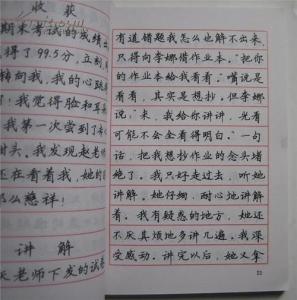 收获
期末考试的成绩出
得了99.5分，立刻，
转向我，我的心跳
！我觉得脸和耳
我第一次尝到了
甜头。我发现赵老师
还在看着我，她的
那么慈祥！
讲解
天老师下发的试卷
有道错题我怎么也解不出来，
只得向李娜借作业本。“把你
的作业本给我看看。”嘴说是
看看，其实是想抄。但李娜
说：“来，我给你讲讲，光看
可能不会全看得明白。”一句
话，把我想抄作业的念头堵
绝了。我只好走过去，听她
讲解。她仔细、耐心地讲解
着。我有疑惑的地方，她还
不厌其烦地多讲几遍。我深
受感动。讲完以后，她又拿